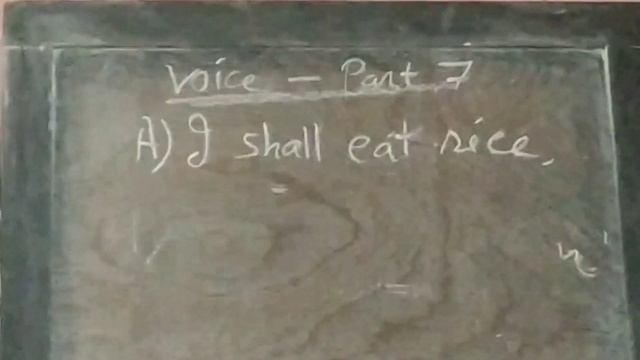 Voice - Part 7
A) I shall eat rice.